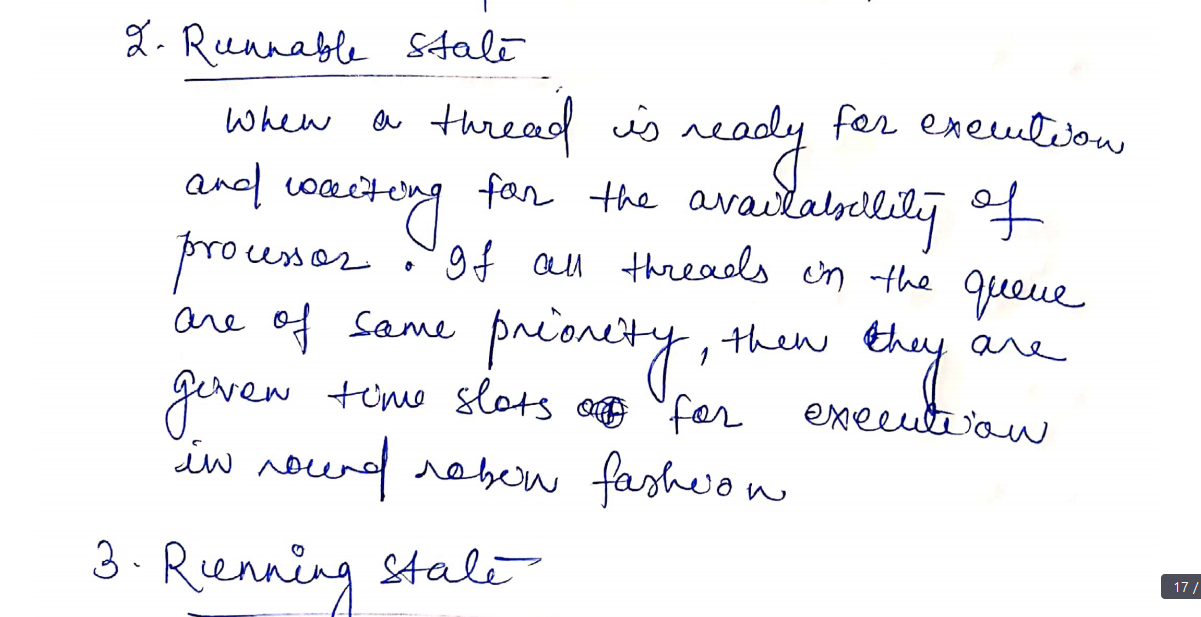 2. Runnable State
When a thread is ready for execution
and waiting for the availability of
processor. If all threads in the queue
are of same priority, then they are
given time slots for execution
in round robin fashion
3. Running state
17 /